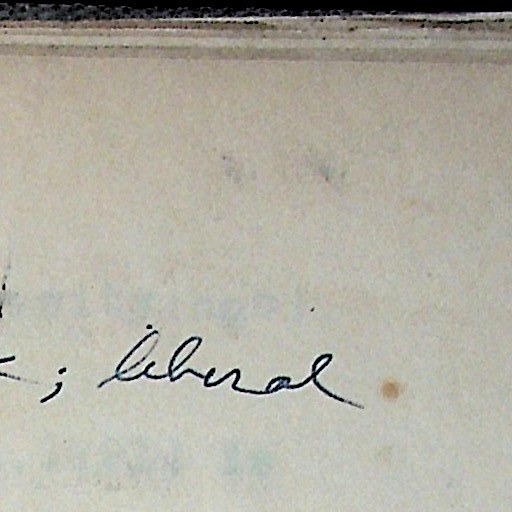 ; liberal